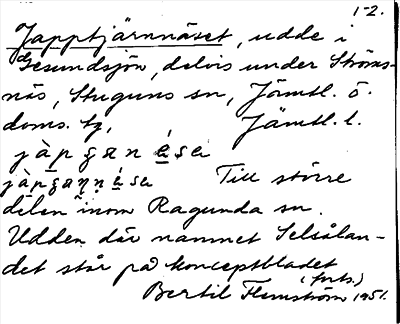 1-2.
Japptjärnnäset, udde i
Gesundsjön, delvis under Ströms-
näs, Stuguns sn, Jämtl. ö.
doms. tg, Jämtl. l.
Till större
delen inom Ragunda sn.
Udden där namnet Selsålan-
det står på konceptbladet
(forts.)
Bertil Flemström 1951.